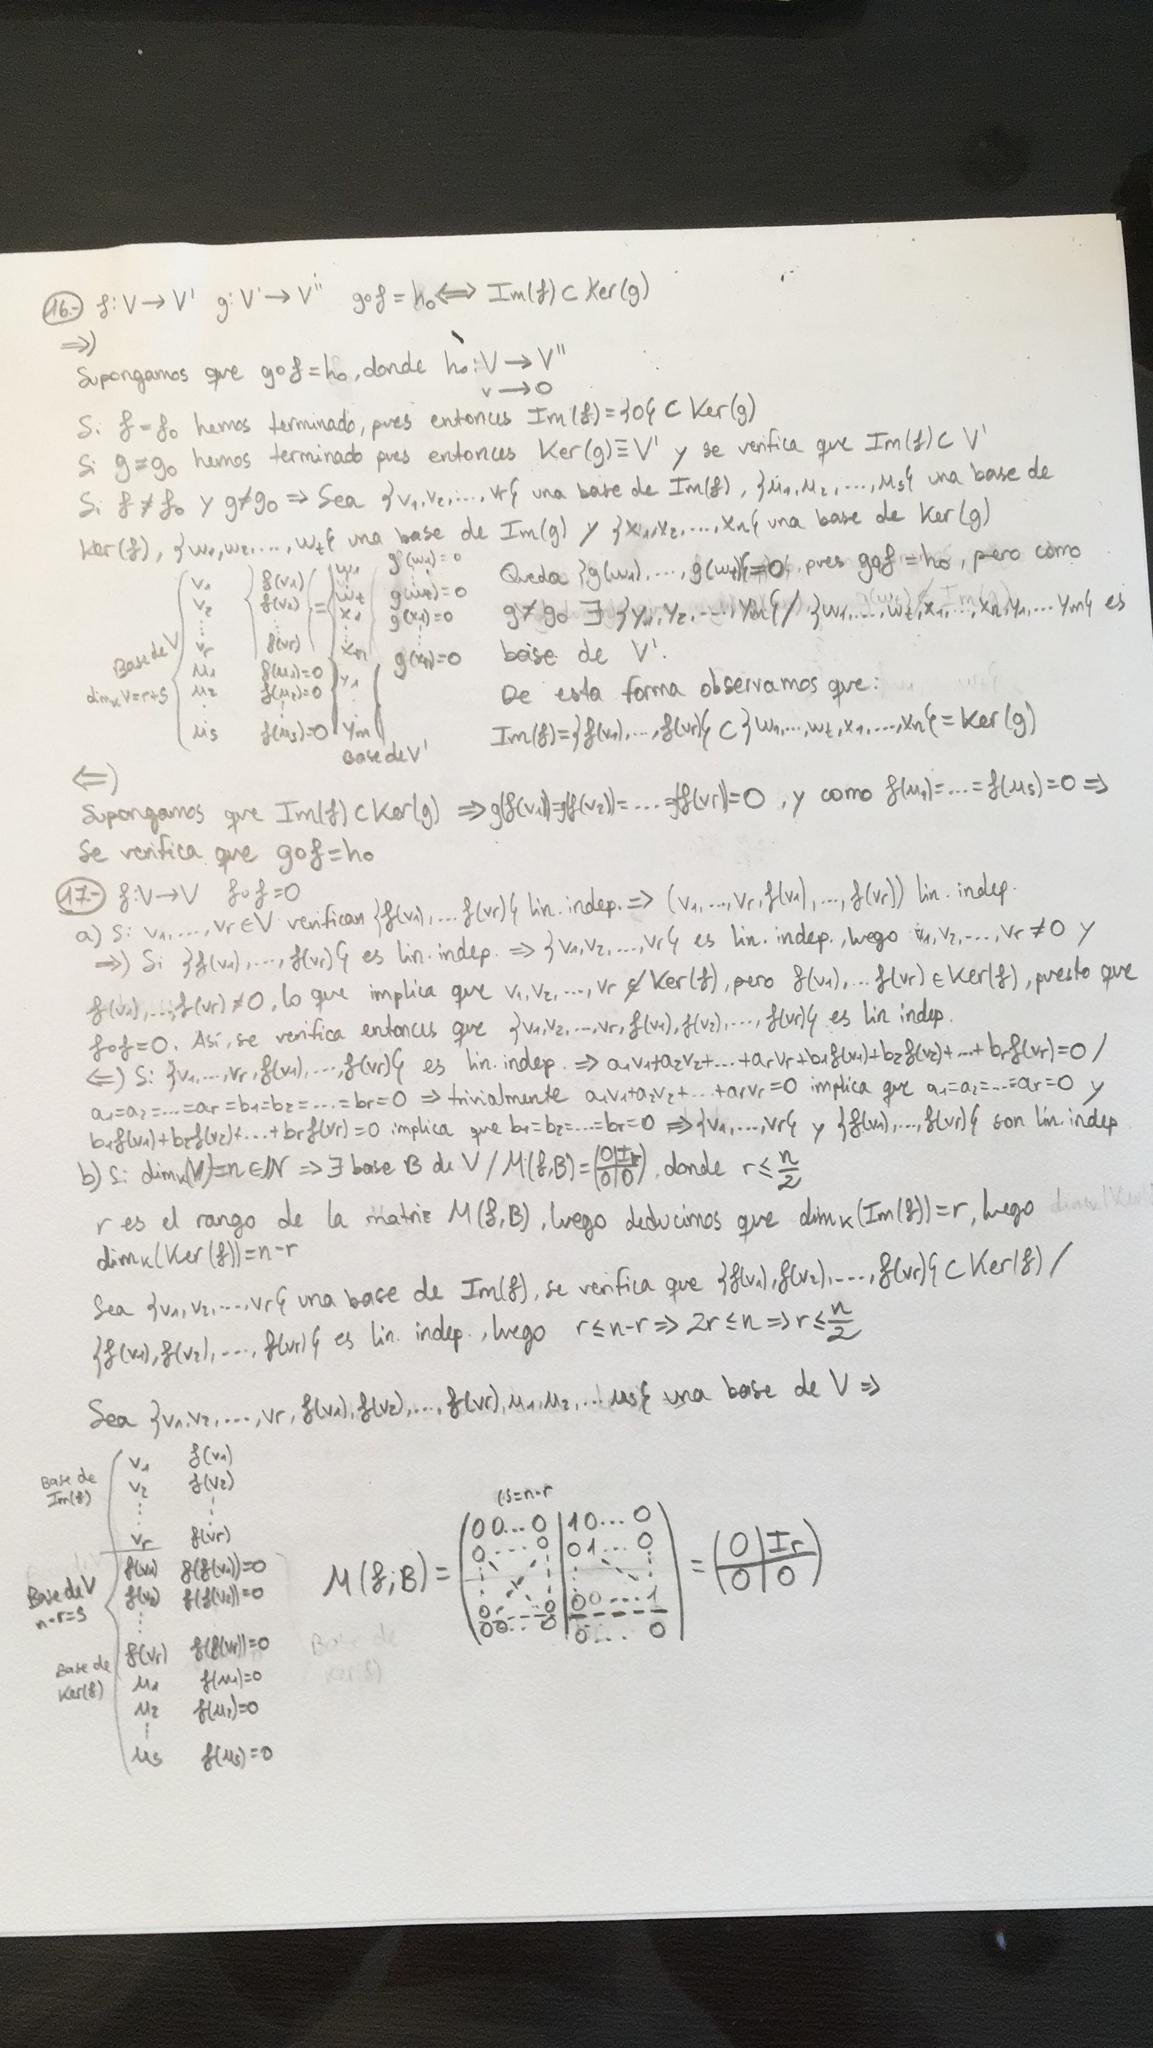 16.- f: V → V' g: V' → V'' g∘f = h₀ ⟺ Im(f) ⊂ Ker(g)
⇒)
Supongamos que g∘f = h₀, donde h₀: V → V''
v → 0
Si f = f₀ hemos terminado, pues entonces Im(f) = {0} ⊂ Ker(g)
Si g = g₀ hemos terminado pues entonces Ker(g) ≡ V' y se verifica que Im(f) ⊂ V'
Si f ≠ f₀ y g ≠ g₀ ⇒ Sea {v₁, v₂, ..., vr} una base de Im(f), {u₁, u₂, ..., us} una base de
Ker(f), {w₁, w₂, ..., wt} una base de Im(g) y {x₁, x₂, ..., xn} una base de Ker(g)
Base de V
dimₖV = r+s
v₁ f(v₁) w₁ g(w₁) = 0
v₂ f(v₂) = wt g(wt) = 0
x₁ g(x₁) = 0
vr f(vr) xn g(xn) = 0
u₁ f(u₁) = 0 y₁
u₂ f(u₂) = 0
us f(us) = 0 ym
Base de V'
Queda {g(w₁), ..., g(wt)} = 0, pues g∘f = h₀, pero como
g ≠ g₀ ∃ {y₁, y₂, ..., ym} / {w₁, ..., wt, x₁, ..., xn, y₁, ... ym} es
base de V'.
De esta forma observamos que:
Im(f) = {f(v₁), ..., f(vr)} ⊂ {w₁, ..., wt, x₁, ..., xn} = Ker(g)
⇐)
Supongamos que Im(f) ⊂ Ker(g) ⇒ g(f(v₁)) = g(f(v₂)) = .... = g(f(vr)) = 0, y como f(u₁) = ... = f(us) = 0 ⇒
Se verifica que g∘f = h₀
17.- f: V → V f∘f = 0
a) Si v₁, ..., vr ∈ V verifican {f(v₁), ... f(vr)} lin. indep. ⇒ (v₁, ..., vr, f(v₁), ..., f(vr)) lin. indep.
⇒) Si {f(v₁), ..., f(vr)} es lin. indep. ⇒ {v₁, v₂, ..., vr} es lin. indep., luego v₁, v₂, ..., vr ≠ 0 y
f(v₁), ..., f(vr) ≠ 0, lo que implica que v₁, v₂, ..., vr ∉ Ker(f), pero f(v₁), ... f(vr) ∈ Ker(f), puesto que
f∘f = 0. Así, se verifica entonces que {v₁, v₂, ..., vr, f(v₁), f(v₂), ..., f(vr)} es lin indep.
⇐) Si {v₁, ..., vr, f(v₁), ..., f(vr)} es lin. indep. ⇒ a₁v₁+a₂v₂+...+arvr+b₁f(v₁)+b₂f(v₂)+...+brf(vr) = 0 /
a₁=a₂=...=ar=b₁=b₂=...=br=0 ⇒ trivialmente a₁v₁+a₂v₂+...+arvr=0 implica que a₁=a₂=...=ar=0 y
b₁f(v₁)+b₂f(v₂)+...+brf(vr)=0 implica que b₁=b₂=...=br=0 ⇒ {v₁, ..., vr} y {f(v₁), ..., f(vr)} son lin. indep
b) Si dimₖ(V) = n ∈ ℕ ⇒ ∃ base B de V / M(f,B) = (0|Ir / 0|0), donde r ≤ n/2
r es el rango de la matriz M(f,B), luego deducimos que dimₖ(Im(f)) = r, luego
dimₖ(Ker(f)) = n-r
Sea {v₁, v₂, ..., vr} una base de Im(f), se verifica que {f(v₁), f(v₂), ..., f(vr)} ⊂ Ker(f) /
{f(v₁), f(v₂), ..., f(vr)} es lin. indep., luego r ≤ n-r ⇒ 2r ≤ n ⇒ r ≤ n/2
Sea {v₁, v₂, ..., vr, f(v₁), f(v₂), ..., f(vr), u₁, u₂, ... us} una base de V ⇒
Base de Im(f)
v₁ f(v₁)
v₂ f(v₂)
vr f(vr)
Base de V
n-r=s
f(v₁) f(f(v₁)) = 0
f(v₂) f(f(v₂)) = 0
f(vr) f(f(vr)) = 0
Base de Ker(f)
u₁ f(u₁) = 0
u₂ f(u₂) = 0
us f(us) = 0
(s=n-r
M(f;B) = (00...0 | 10...0
0....0 | 01...0
0...0 | 00...1
00...0 | 0....0) = (0|Ir / 0|0)